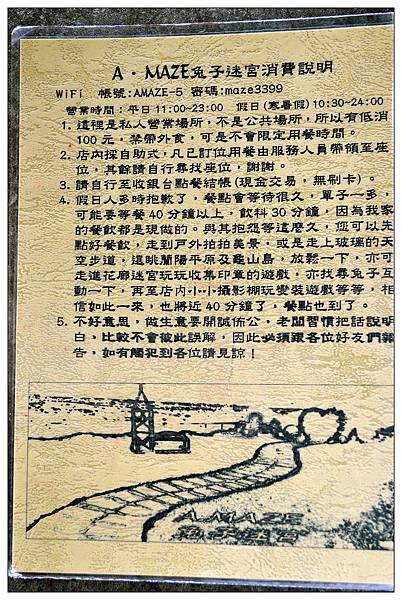 A．MAZE兔子迷宮消費說明
WiFi 帳號:AMAZE-5 密碼:maze3399
營業時間：平日11:00~23:00 假日(寒暑假)10:30~24:00
1. 這裡是私人營業場所，不是公共場所，所以有低消
100元，禁帶外食，可是不會限定用餐時間。
2. 店內採自助式，凡已訂位用餐由服務人員帶領至座
位，其餘請自行尋找座位，謝謝。
3. 請自行至收銀台點餐結帳(現金交易，無刷卡)。
4. 假日人多時抱歉了，餐點會等待很久，單子一多，
可能要等餐40分鐘以上，飲料30分鐘，因為我家
的餐飲都是現做的。與其抱怨等這麼久，您可以先
點好餐飲，走到戶外拍拍美景，或是走上玻璃的天
空步道，這眺蘭陽平原及龜山島，放鬆一下，亦可
走進花廊迷宮玩玩收集印章的遊戲，亦找尋兔子互
動一下，再至店內小小攝影棚玩變裝遊戲等等，相
信如此一來，也將近40分鐘了，餐點也到了。
5. 不好意思，做生意要開誠佈公，老闆習慣把話說明
白，比較不會彼此誤解，因此必須跟各位好友們報
告，如有觸犯到各位請見諒！
A MAZE
兔子迷宮